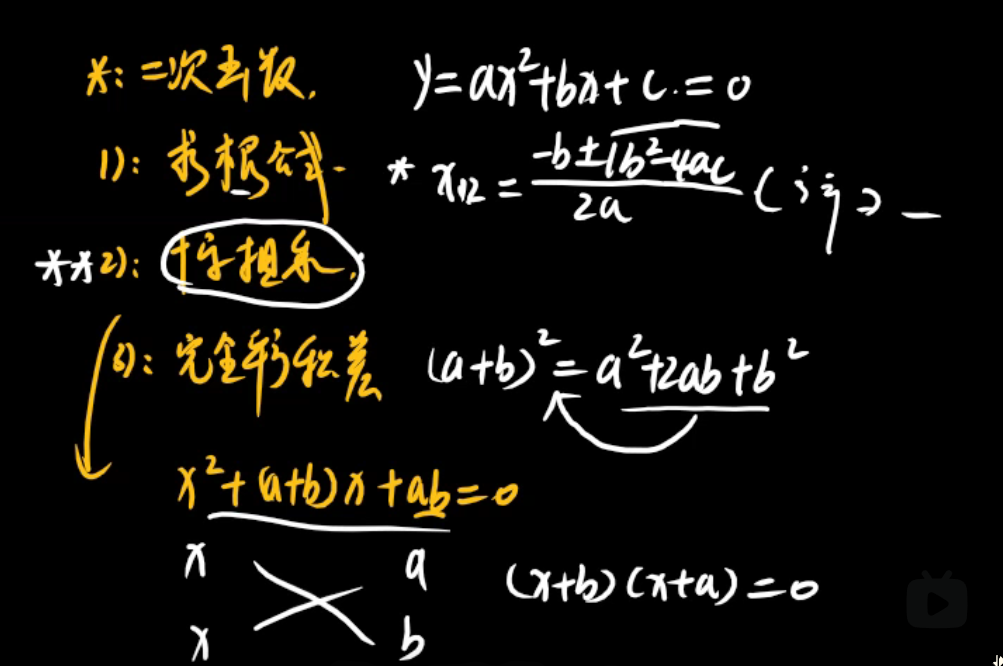 *: 二次函数. y=ax²+bx+c.=0
1): 求根公式. * x₁,₂ = (-b±√(b²-4ac))/(2a)
**2): 十字相乘.
3): 完全平方和差 (a+b)²=a²+2ab+b²
x²+(a+b)x+ab=0
x a
(x+b)(x+a)=0
x b